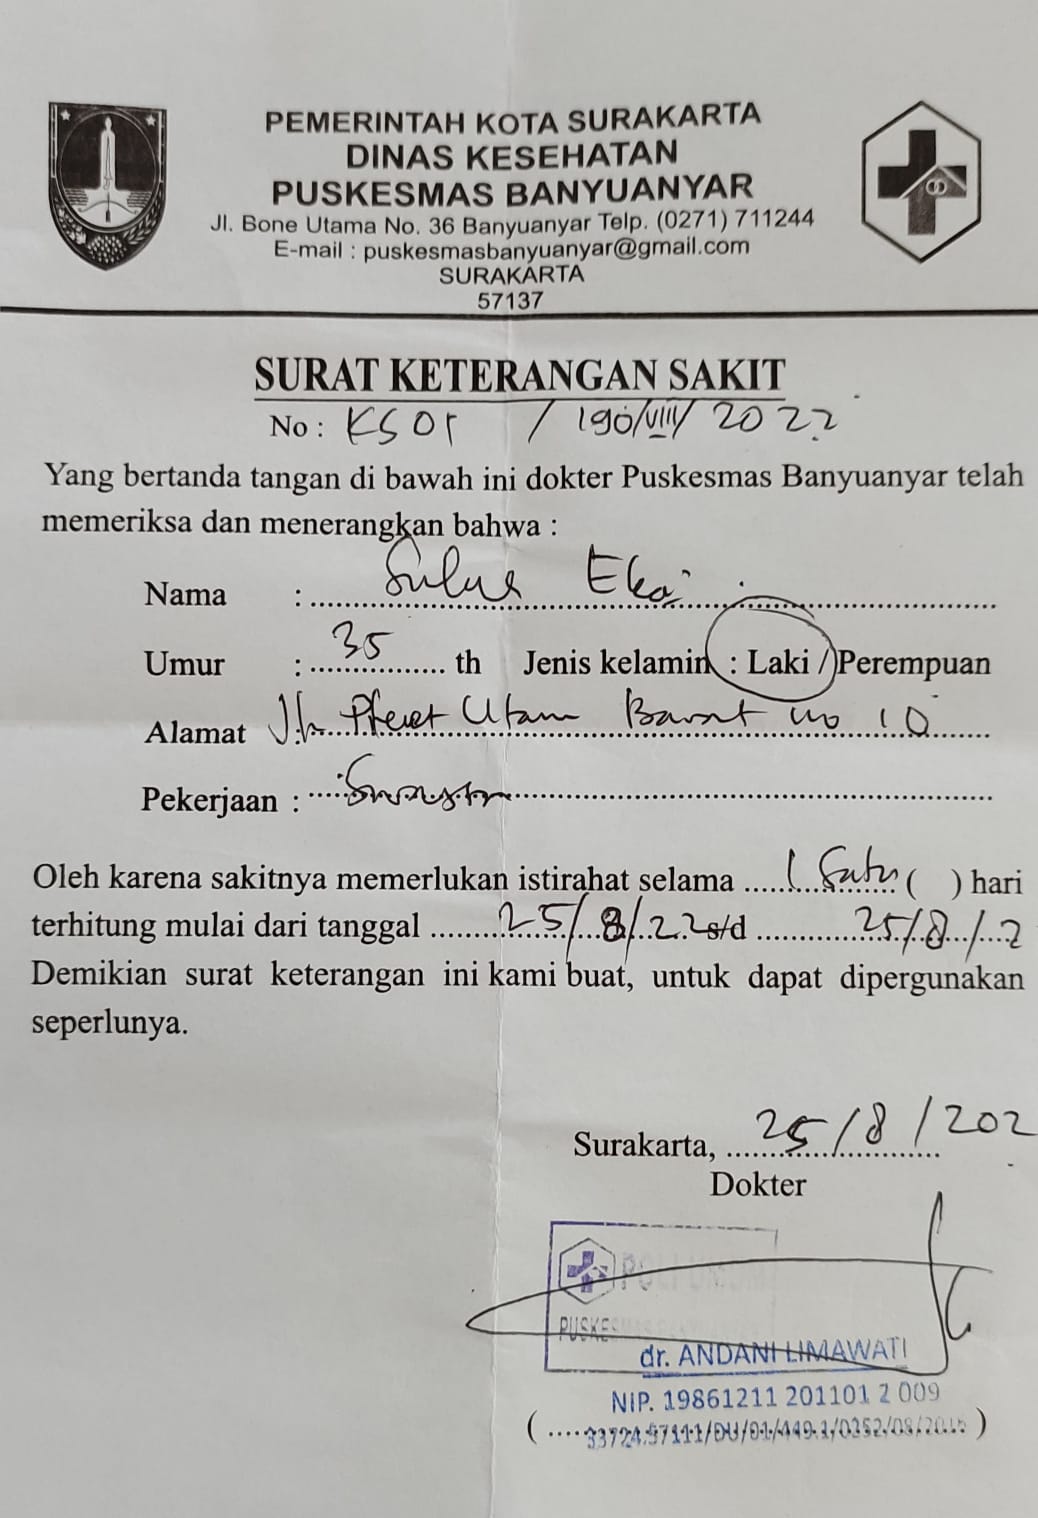 PEMERINTAH KOTA SURAKARTA
DINAS KESEHATAN
PUSKESMAS BANYUANYAR
Jl. Bone Utama No. 36 Banyuanyar Telp. (0271) 711244
E-mail : puskesmasbanyuanyar@gmail.com
SURAKARTA
57137
SURAT KETERANGAN SAKIT
No : / 190/VIII/ 2022
Yang bertanda tangan di bawah ini dokter Puskesmas Banyuanyar telah
memeriksa dan menerangkan bahwa :
Nama : Eka
Umur : 35 th Jenis kelamin : Laki / Perempuan
Alamat Jln Utama Barat no 10
Pekerjaan : Swasta
Oleh karena sakitnya memerlukan istirahat selama 1 Satu ( ) hari
terhitung mulai dari tanggal 25/8/22 s/d 25/8/2
Demikian surat keterangan ini kami buat, untuk dapat dipergunakan
seperlunya.
Surakarta, 25/8/202
Dokter
POLI UMUM
PUSKESMAS BANYUANYAR
dr. ANDANI LIMAWATI
NIP. 19861211 201101 2 009
( 33724.57111/DU/01/449.1/0252/08/ )